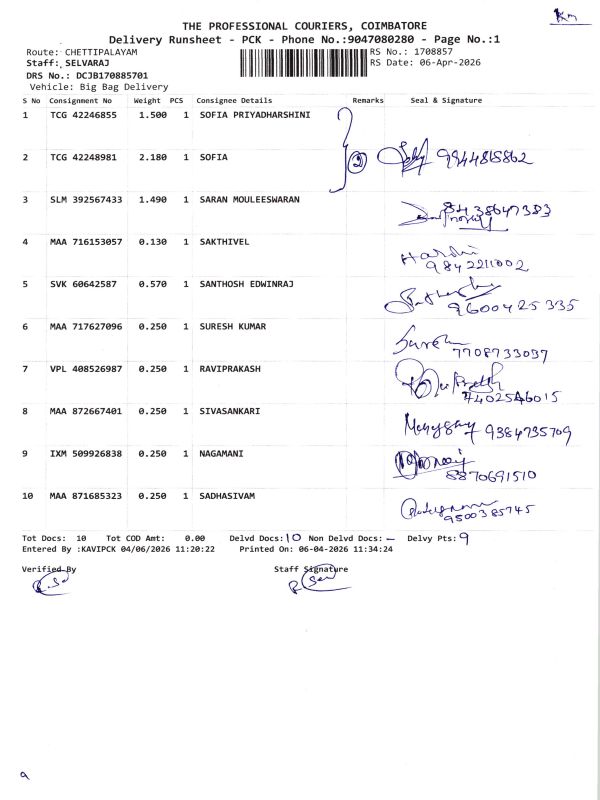 Km
THE PROFESSIONAL COURIERS, COIMBATORE
Delivery Runsheet - PCK - Phone No.:9047080280 - Page No.:1
Route: CHETTIPALAYAM RS No.: 1708857
Staff: SELVARAJ RS Date: 06-Apr-2026
DRS No.: DCJB170885701
Vehicle: Big Bag Delivery
S No Consignment No Weight PCS Consignee Details Remarks Seal & Signature
1 TCG 42246855 1.500 1 SOFIA PRIYADHARSHINI
2 TCG 42248981 2.180 1 SOFIA 2 9944815862
3 SLM 392567433 1.490 1 SARAN MOULEESWARAN 8438647383
4 MAA 716153057 0.130 1 SAKTHIVEL Harshi
9842211002
5 SVK 60642587 0.570 1 SANTHOSH EDWINRAJ
9600425335
6 MAA 717627096 0.250 1 SURESH KUMAR Suresh
7708733037
7 VPL 408526987 0.250 1 RAVIPRAKASH
7402546015
8 MAA 872667401 0.250 1 SIVASANKARI 9384735709
9 IXM 509926838 0.250 1 NAGAMANI
8870691510
10 MAA 871685323 0.250 1 SADHASIVAM
9500385745
Tot Docs: 10 Tot COD Amt: 0.00 Delvd Docs: 10 Non Delvd Docs: - Delvy Pts: 9
Entered By :KAVIPCK 04/06/2026 11:20:22 Printed On: 06-04-2026 11:34:24
Verified By Staff Signature